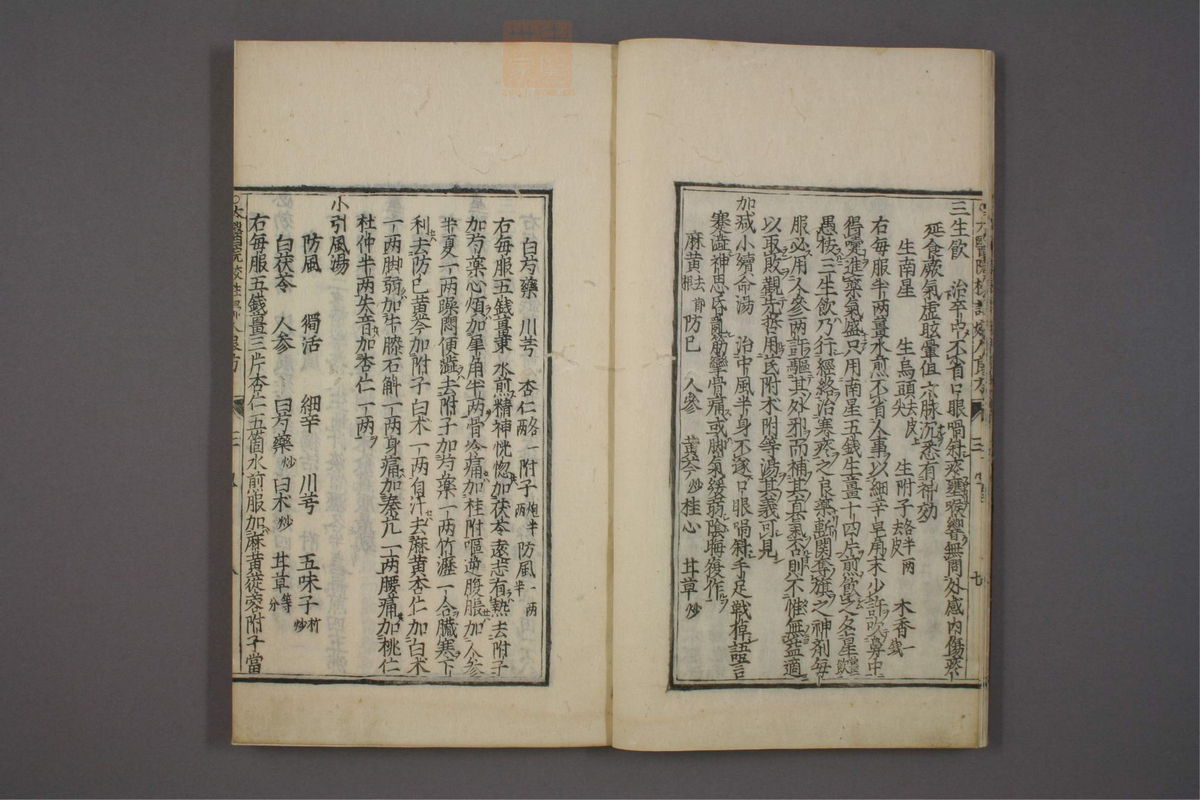 三生飲 治卒中不省口眼喎斜痰壅喉響無問外感內傷痰
延食厥氣虛眩暈但六脉沉悉有神効
生南星 生烏頭去皮尖 生附子各半两去皮 木香一錢
右每服半两薑水煎不省人事以細辛皂角末少許吹鼻中
得嚏進藥氣盛只用南星五錢生薑十四片煎飲名星香飲
愚桉三生飲乃行經絡治寒痰之良藥斬関奪旗之神剤每
服必用人参两許驅其外邪而補其真氣否則不惟無益適
以取敗觀先哲用芪附木附等湯其義可見
加减小續命湯 治中風半身不遂口眼喎斜手足戦掉語言
蹇澁神思昏亂筋攣骨痛或脚氣緩弱陰晦復作
麻黄去節根 防巳 人參 黄芩炒 桂心 甘草炒
白芍藥 川芎 杏仁各一两 附子炮半两 防風一两半
右每服五錢薑棗水煎精神恍惚加茯苓遠志有熱去附子
加芍藥心煩加犀角半两骨冷痛加桂附嘔逆腹脹加人参
半夏一两躁悶便澁去附子加芍薬一两竹瀝一合臓寒下
利去防巳黄芩加附子白术一两自汗去麻黄杏仁加白术
一两脚弱加牛膝石斛一两身痛加秦艽一两腰痛加桃仁
杜仲半两失音加杏仁一两
小引風湯
防風 獨活 細辛 川芎 五味子炒
白茯苓 人参 白芍藥炒 白术炒 甘草等分
右每服五錢薑三片杏仁五箇水煎服加麻黄蓯蓉附子當